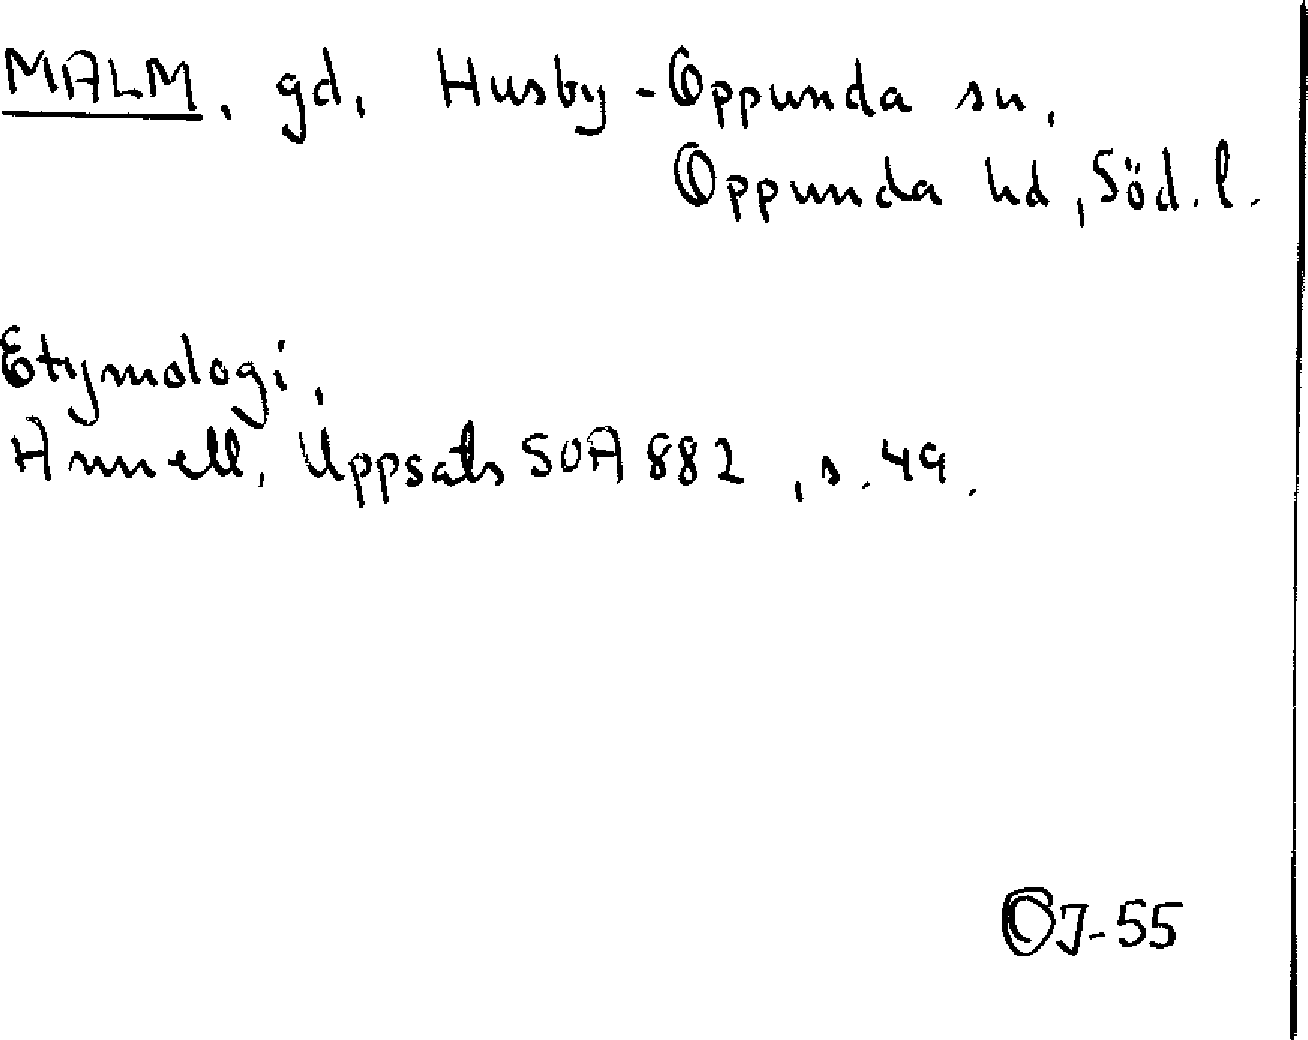 MALM, gd, Husby-Oppunda sn,
Oppunda hd, Söd. l.
Etymologi,
Annell, Uppsats SOA 882, s. 49.
OJ-55